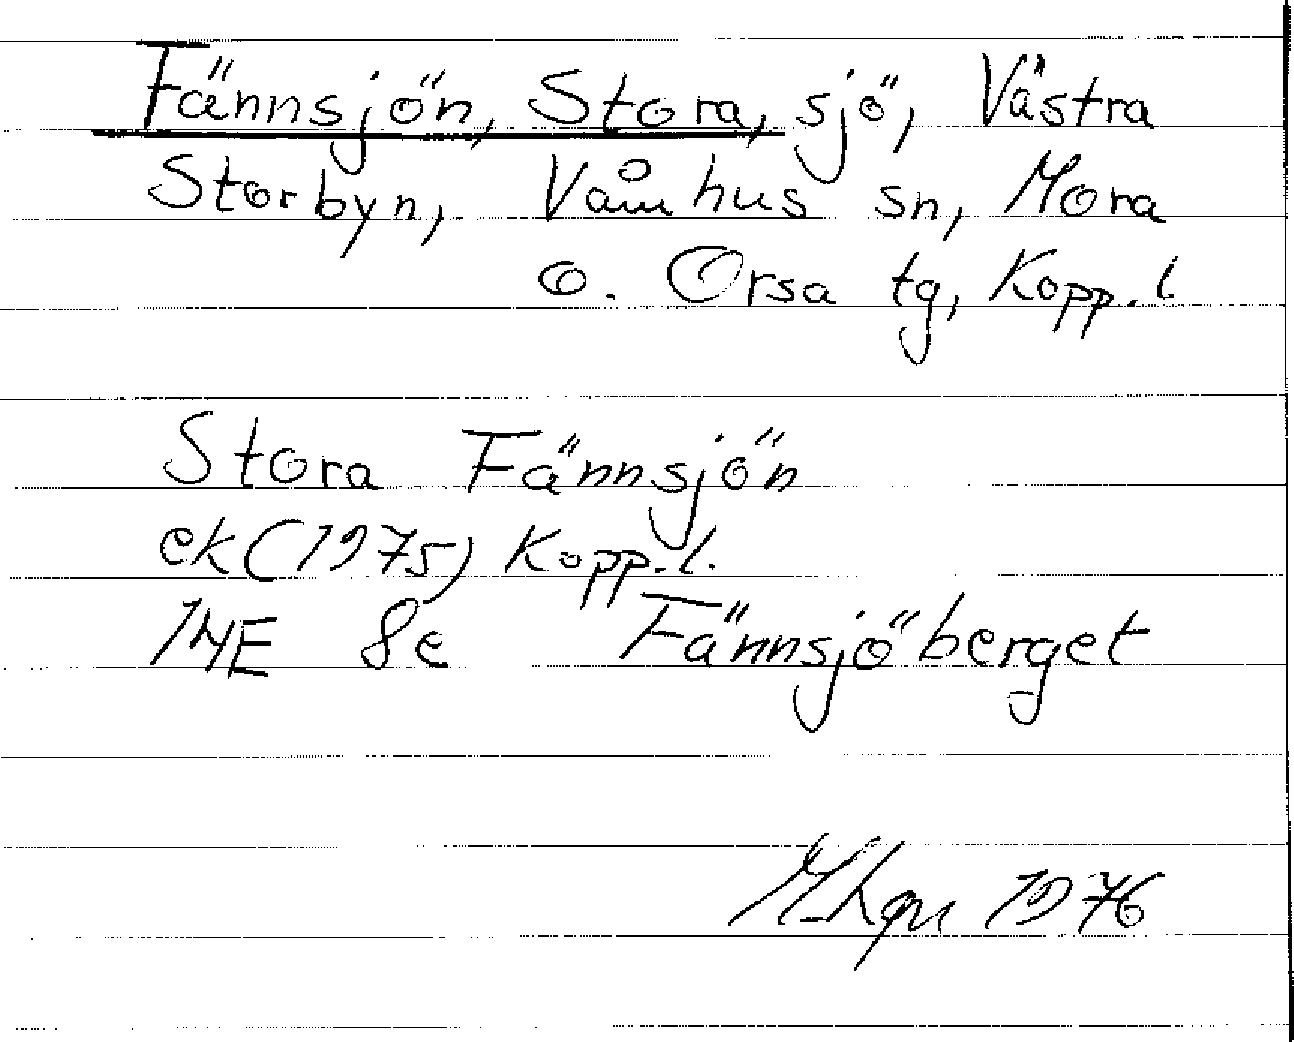 Fännsjön, Stora, sjö, Västra
Storbyn, Våmhus sn, Mora
o. Orsa tg, Kopp. l
Stora Fännsjön
ek (1975) Kopp. l.
14E 8e Fännsjöberget
1976